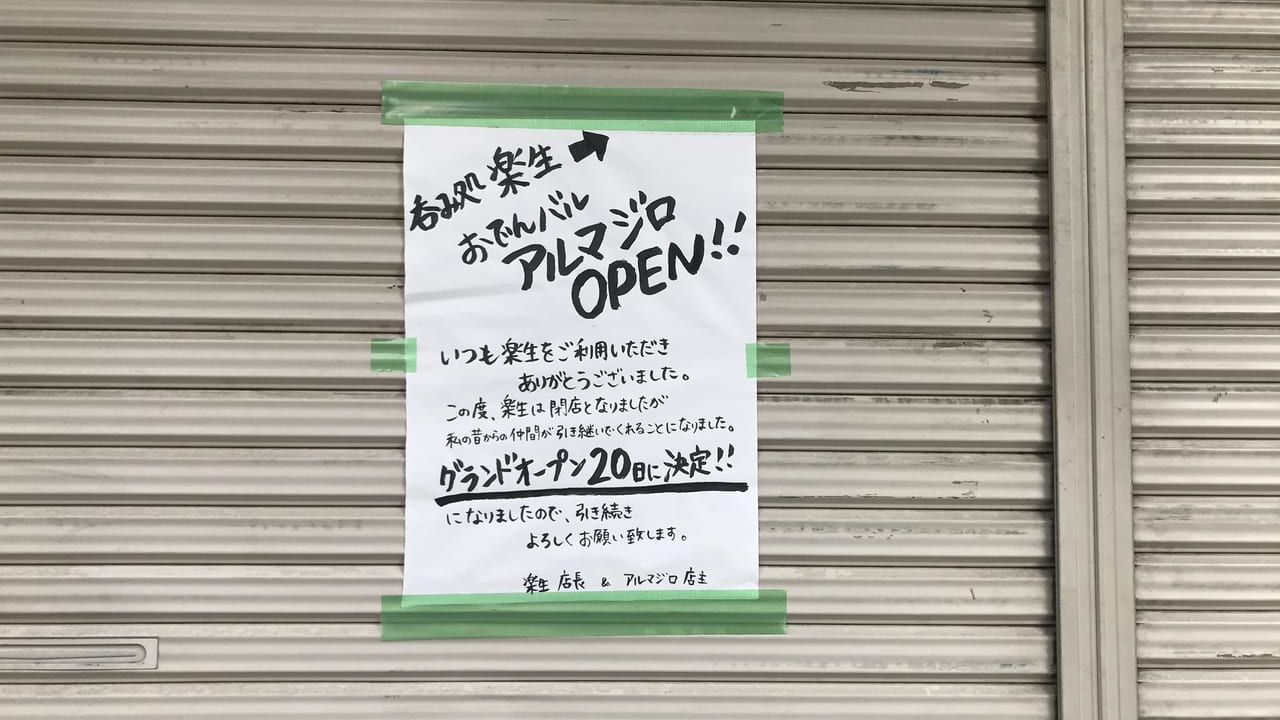 呑み処 楽生 ➡
おでんバル
アルマジロ
OPEN!!
いつも楽生をご利用いただき
ありがとうございました。
この度、楽生は閉店となりましたが
私の昔からの仲間が引き継いでくれることになりました。
グランドオープン20日に決定!!
になりましたので、引き続き
よろしくお願い致します。
楽生 店長 & アルマジロ 店主